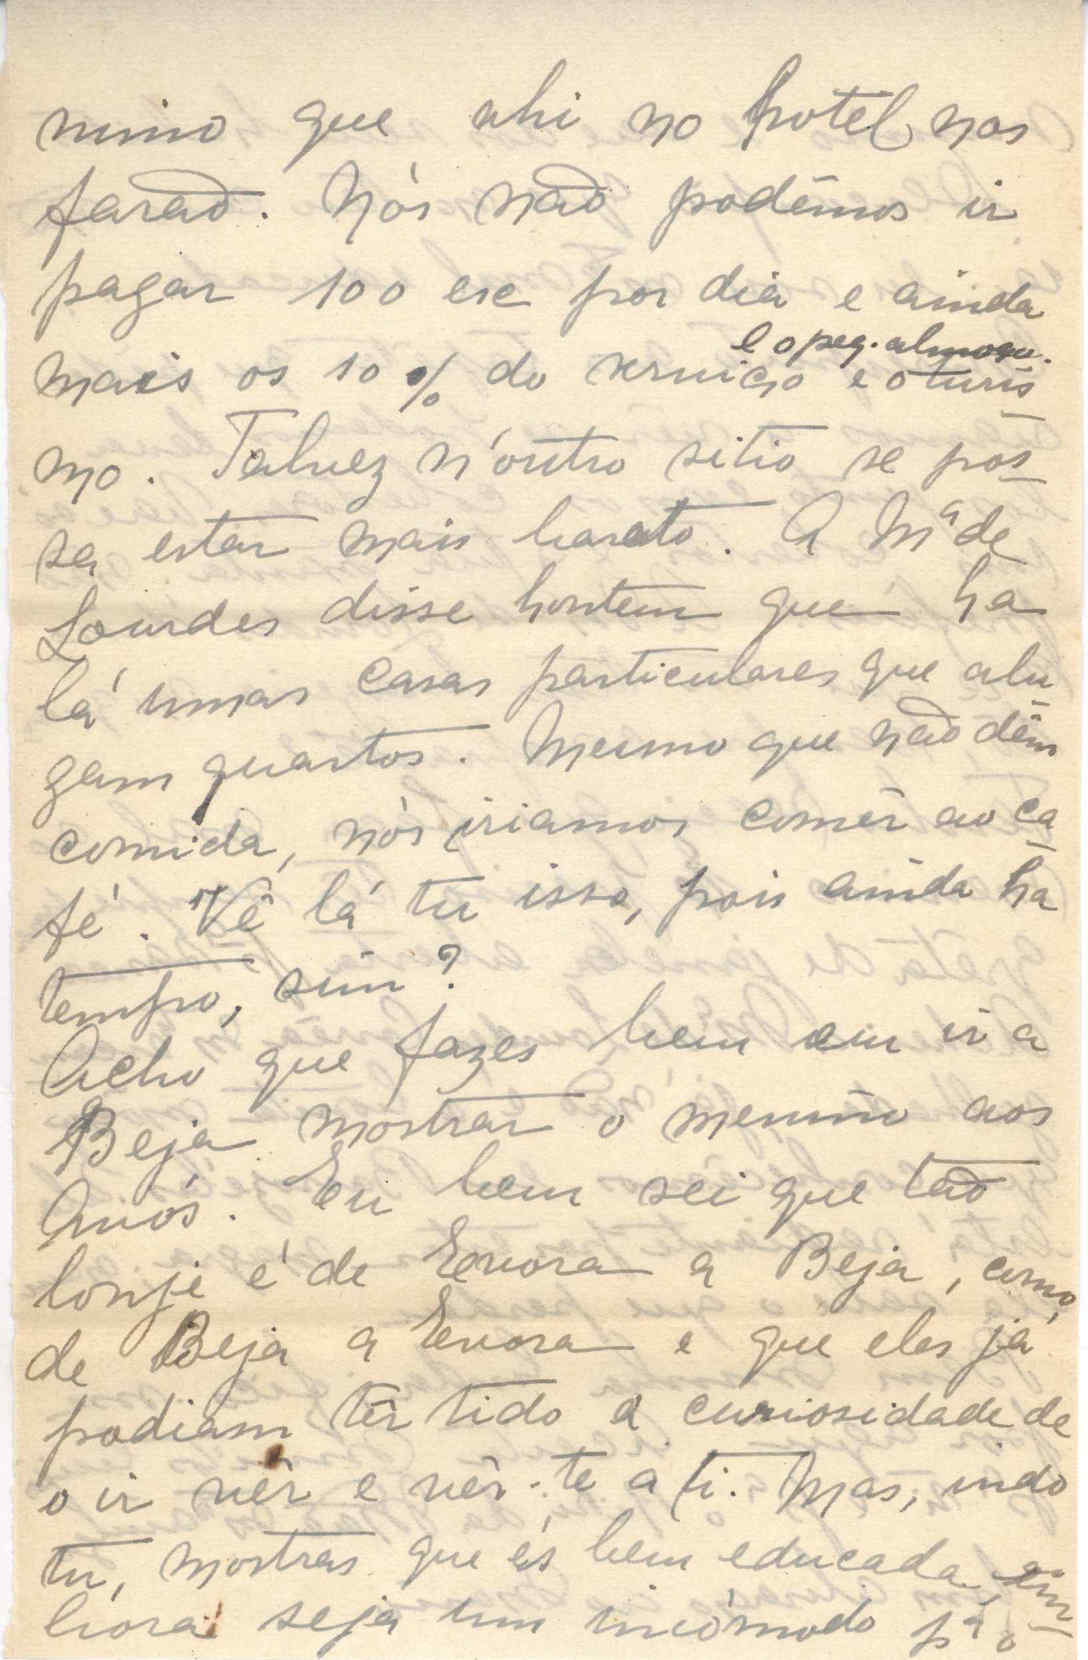 nimo que ahi no hotel nos
farão. Nós não podêmos ir
pagar 100 esc por dia e ainda
e o peq. almoço.
mais os 10 % do serviço e o turis
mo. Talvez n'outro sitio se pos-
sa estar mais barato. A Mª de
Lourdes disse hontem que ha
lá umas casas particulares que alu-
gam quartos. Mesmo que não dêm
comida, nós iriamos comêr ao ca-
fé. Vê lá tu isso, pois ainda ha
tempo, sim?
Acho que fazes bem em ir a
Beja mostrar o menino aos
Avós. Eu bem sei que tão
lonje é de Evora a Beja, como
de Beja a Evora e que eles já
podiam têr tido a curiosidade de
o ir vêr e vêr-te a ti. Mas, indo
tu, mostras que és bem educada em-
bora seja um incómodo pª o